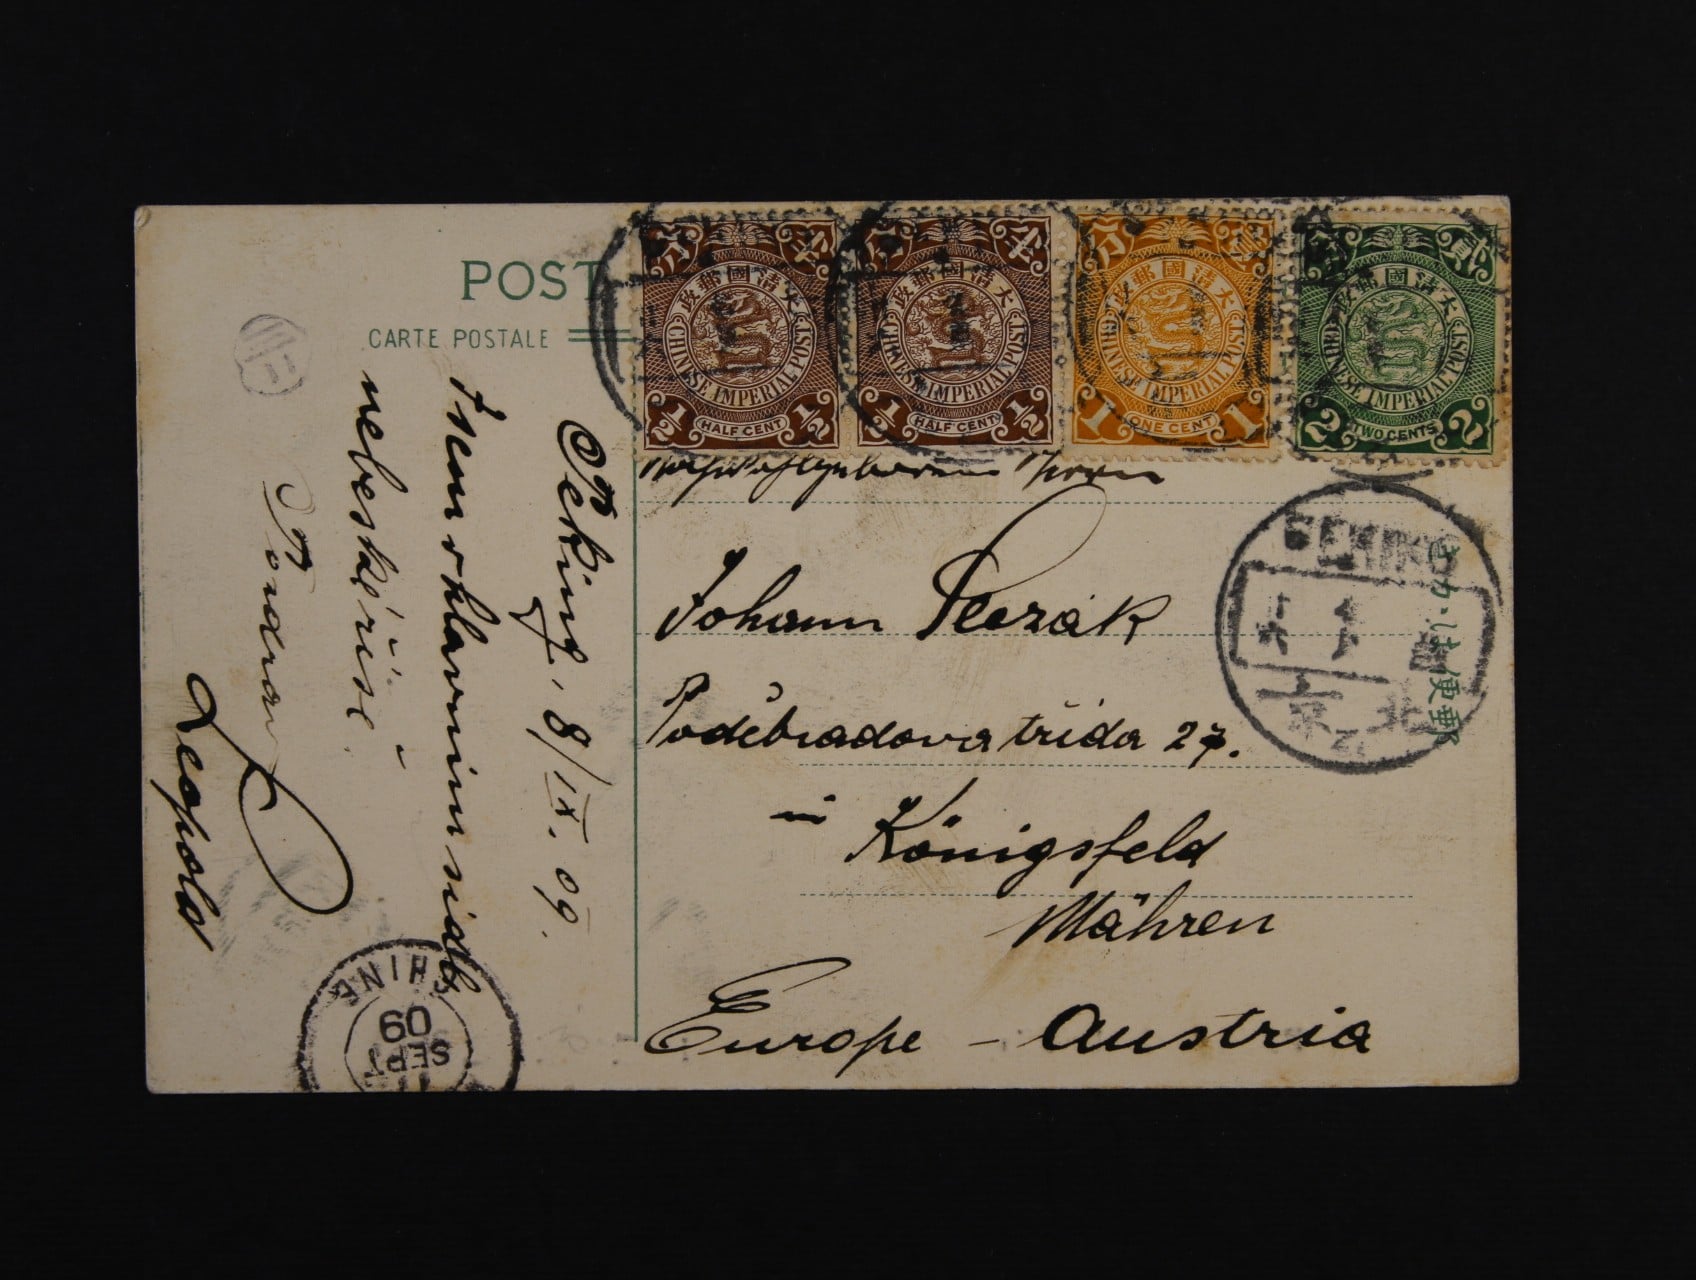 POST
CARTE POSTALE
分 半
大清國郵政
CHINESE IMPERIAL POST
½ HALF CENT ½
分 半
大清國郵政
CHINESE IMPERIAL POST
½ HALF CENT ½
分 壹
大清國郵政
CHINESE IMPERIAL POST
1 ONE CENT 1
貳
大清國郵政
CHINESE IMPERIAL POST
2 TWO CENTS 2
Johann
Poděbradova třída 27.
in Königsfeld
Mähren
Europe - Austria
PEKING
北京
きかは便郵
Peking, 8/IX. 09.
Jsem v hlavním sídle
nebeské říše.
Leopold
CHINE
SEPT
09